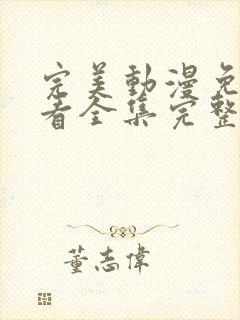 完美動漫免
看全集完整
董志偉